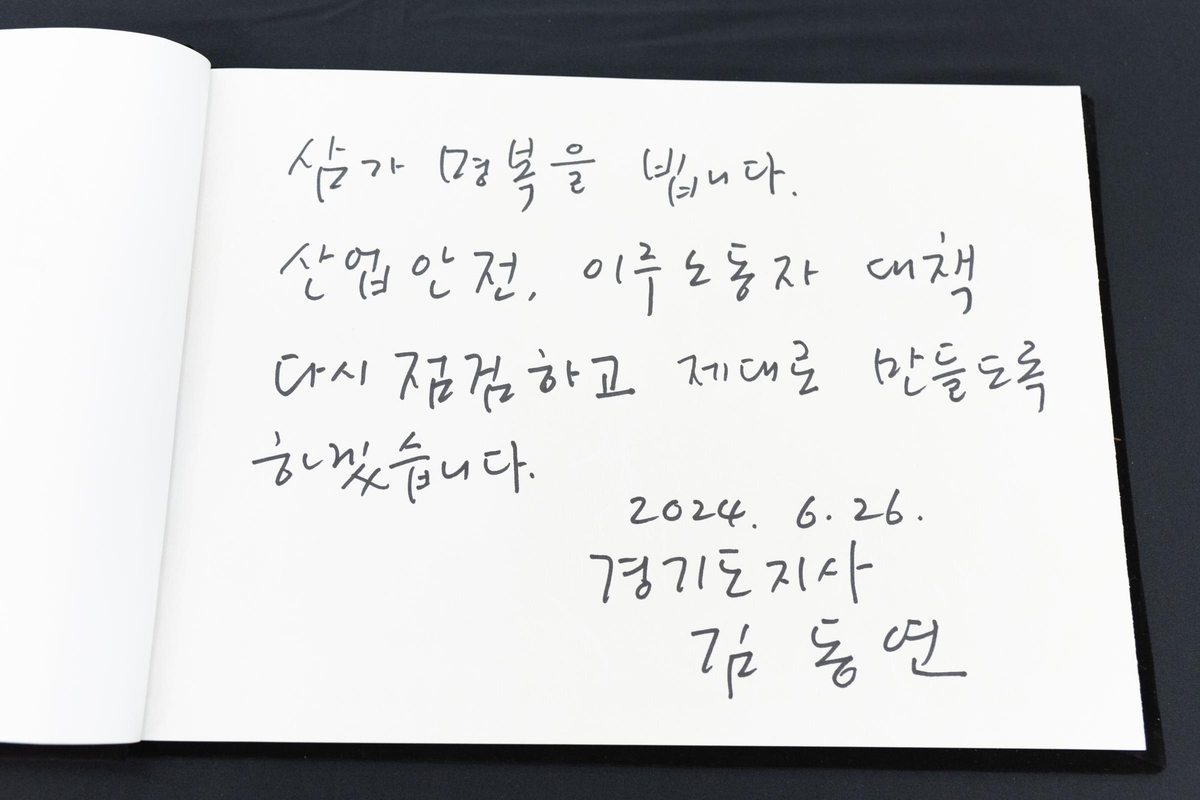 삼가 명복을 빕니다.
산업안전, 이주노동자 대책
다시 점검하고 제대로 만들도록
하겠습니다.
2024. 6. 26.
경기도지사
김동연